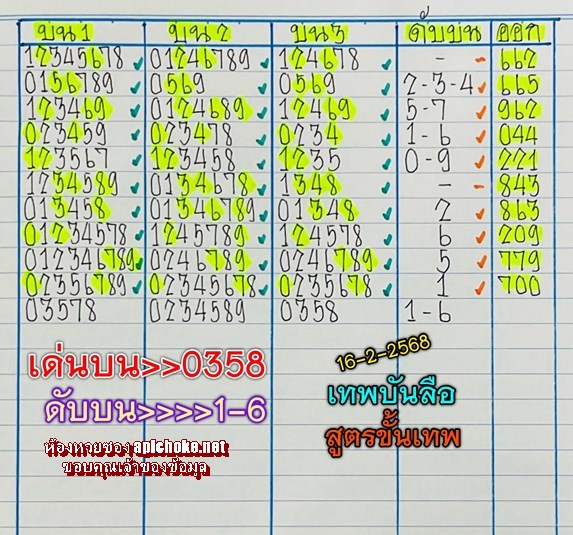 บน1 บน2 บน3 ดับบน ออก
12345678 01246789 124678 - 662
0156789 0569 0569 2-3-4 665
123469 0124689 12469 5-7 962
023459 023478 0234 1-6 044
123567 123458 1235 0-9 221
1234589 0134678 1348 - 843
013458 01346789 01348 2 863
01234578 1245789 124578 6 209
012346789 0246789 0246789 5 779
02356789 02345678 0235678 1 700
03578 0234589 0358 1-6
เด่นบน>>0358
ดับบน>>>>1-6
16-2-2568
เทพบันลือ
สูตรขั้นเทพ
ห้องหวยซอง aplchoke.net
ขอบคุณเจ้าของข้อมูล